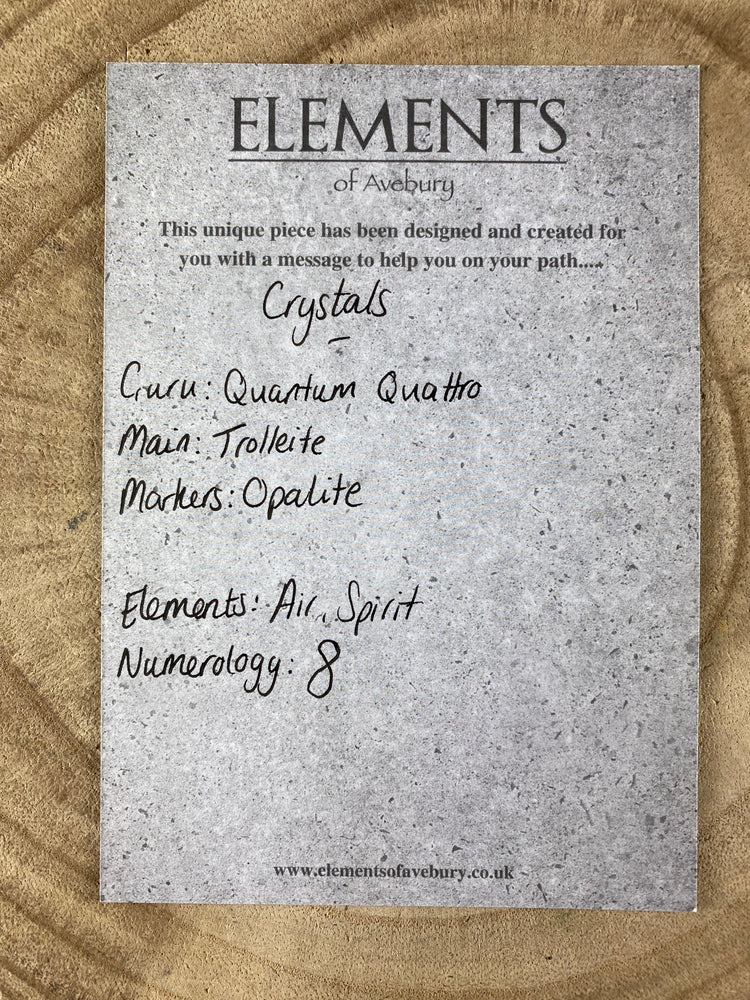 ELEMENTS
of Avebury
This unique piece has been designed and created for
you with a message to help you on your path....
Crystals
Guru: Quantum Quattro
Main: Trolleite
Markers: Opalite
Elements: Air, Spirit
Numerology: 8
www.elementsofavebury.co.uk